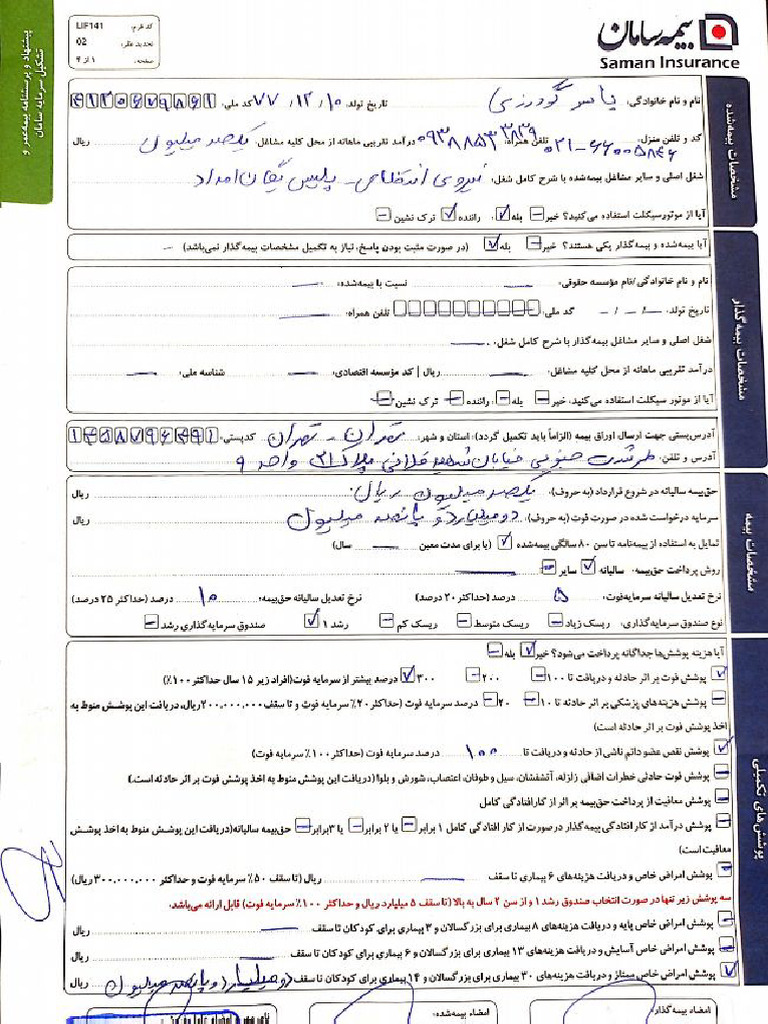 کد فرم: LIF141
تجدید نظر: 02
صفحه: ۱ از ۴
بیمه سامان
Saman Insurance
پیشنهاد و پرسشنامه بیمه عمر و
تشکیل سرمایه سامان
مشخصات بیمه‌شده
نام و نام خانوادگی: یاسر گودرزی تاریخ تولد: ۷۷/۱۲/۱۰ کد ملی:
کد و تلفن منزل: ۰۲۱-۶۶۰۰۵۸۴۶ تلفن همراه: درآمد تقریبی ماهانه از محل کلیه مشاغل: یکصد میلیون ریال
شغل اصلی و سایر مشاغل بیمه‌شده با شرح کامل شغل: نیروی انتظامی - پلیس یگان امداد
آیا از موتورسیکلت استفاده می‌کنید؟ خیر بله راننده ترک نشین
مشخصات بیمه‌گذار
آیا بیمه‌شده و بیمه‌گذار یکی هستند؟ خیر بله (در صورت مثبت بودن پاسخ، نیاز به تکمیل مشخصات بیمه‌گذار نمی‌باشد)
نام و نام خانوادگی/نام مؤسسه حقوقی: نسبت با بیمه‌شده:
تاریخ تولد: کد ملی: تلفن همراه:
شغل اصلی و سایر مشاغل بیمه‌گذار با شرح کامل شغل:
درآمد تقریبی ماهانه از محل کلیه مشاغل: ریال | کد مؤسسه اقتصادی: شناسه ملی:
آیا از موتور سیکلت استفاده می‌کنید: خیر بله راننده ترک نشین
آدرس‌پستی جهت ارسال اوراق بیمه (الزاماً باید تکمیل گردد): استان و شهر: تهران - تهران کدپستی: ۱۳۵۸۷۹۶۴۹۱
آدرس و تلفن: طرشت جنوبی خیابان شهید پلاک ۳۱ واحد ۹
مشخصات بیمه
حق‌بیمه سالیانه در شروع قرارداد (به حروف): یکصد میلیون ریال ریال
سرمایه درخواست شده در صورت فوت (به حروف): دو میلیارد و پانصد میلیون ریال
تمایل به استفاده از بیمه‌نامه تا سن ۸۰ سالگی بیمه‌شده (یا برای مدت معین سال)
روش پرداخت حق‌بیمه: سالیانه سایر
نرخ تعدیل سالیانه سرمایه‌فوت: ۵ درصد (حداکثر ۲۰ درصد) نرخ تعدیل سالیانه حق‌بیمه: ۱۰ درصد (حداکثر ۲۵ درصد)
نوع صندوق سرمایه‌گذاری: ریسک زیاد ریسک متوسط ریسک کم رشد ۱ صندوق سرمایه‌گذاری رشد
پوشش‌های تکمیلی
آیا هزینه پوشش‌ها جداگانه پرداخت می‌شود؟ خیر بله
پوشش فوت بر اثر حادثه و دریافت تا ۱۰۰ ۲۰۰ ۳۰۰ درصد بیشتر از سرمایه فوت (افراد زیر ۱۵ سال حداکثر ۱۰۰٪)
پوشش هزینه‌های پزشکی بر اثر حادثه تا ۱۰ ۲۰ درصد سرمایه فوت (حداکثر ۲۰٪ سرمایه فوت و تا سقف ۲۰۰.۰۰۰.۰۰۰ ریال، دریافت این پوشش منوط به
اخذ پوشش فوت بر اثر حادثه است)
پوشش نقص عضو دائم ناشی از حادثه و دریافت تا ۱۰۰ درصد سرمایه فوت (حداکثر ۱۰۰٪ سرمایه فوت)
پوشش فوت حادثی خطرات اضافی زلزله، آتشفشان، سیل و طوفان، اعتصاب، شورش و بلوا (دریافت این پوشش منوط به اخذ پوشش فوت بر اثر حادثه است.)
پوشش معافیت از پرداخت حق‌بیمه بر اثر از کارافتادگی کامل
پوشش درآمد از کار افتادگی بیمه‌گذار در صورت از کار افتادگی کامل ۱ برابر یا ۲ برابر یا ۳ برابر حق‌بیمه سالیانه (دریافت این پوشش منوط به اخذ پوشش
معافیت است)
پوشش امراض خاص و دریافت هزینه‌های ۶ بیماری تا سقف ریال (تا سقف ۵۰٪ سرمایه فوت و حداکثر ۳۰۰.۰۰۰.۰۰۰ ریال)
سه پوشش زیر تنها در صورت انتخاب صندوق رشد ۱ و از سن ۲ سال به بالا (تا سقف ۵ میلیارد ریال و حداکثر ۱۰۰٪ سرمایه فوت) قابل ارائه می‌باشد.
پوشش امراض خاص پایه و دریافت هزینه‌های ۸ بیماری برای بزرگسالان و ۳ بیماری برای کودکان تا سقف ریال
پوشش امراض خاص آسایش و دریافت هزینه‌های ۱۳ بیماری برای بزرگسالان و ۶ بیماری برای کودکان تا سقف ریال
پوشش امراض خاص ممتاز و دریافت هزینه‌های ۳۰ بیماری برای بزرگسالان و ۱۴ بیماری برای کودکان تا سقف دو میلیارد و پانصد میلیون ریال
امضاء بیمه‌گذار: امضاء بیمه‌شده: